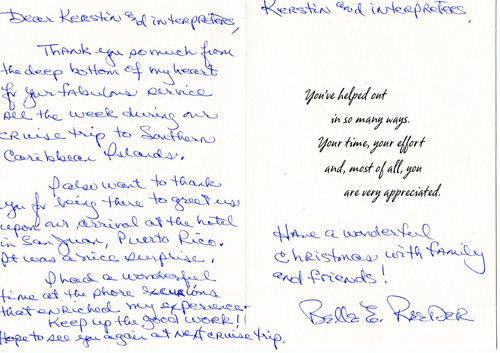 Dear Kerstin and interpreters,
Thank you so much from
the deep bottom of my heart
for your fabulous service
all the week during our
cruise trip to Southern
Caribbean Islands.
I also want to thank
you for being there to greet us
upon our arrival at the hotel
in San Juan, Puerto Rico.
It was a nice surprise.
I had a wonderful
time at the shore
that enriched my experience.
Keep up the good work!!
Hope to see you again at next cruise trip.
Kerstin and interpreters,
You've helped out
in so many ways.
Your time, your effort
and, most of all, you
are very appreciated.
Have a wonderful
Christmas with family
and friends!
Belle E. Reeder